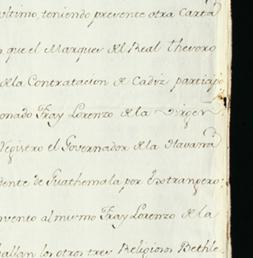 ultimo, teniendo presente otra Carta
que el Marques del Real Thesoro
de la Contratacion de Cadiz participo
onado Fray Lorenzo de la Virgen
Registro el Governador de la Havana
dente de Guathemala por Extrangero:
nvento al mismo Fray Lorenzo de la
hallan los otros tres Religiosos Bethle